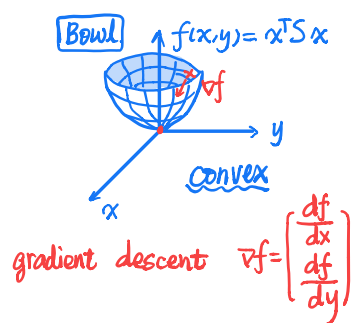 Bowl
f(x,y)=xᵀSx
∇f
y
convex
x
gradient descent ∇f=(df/dx df/dy)